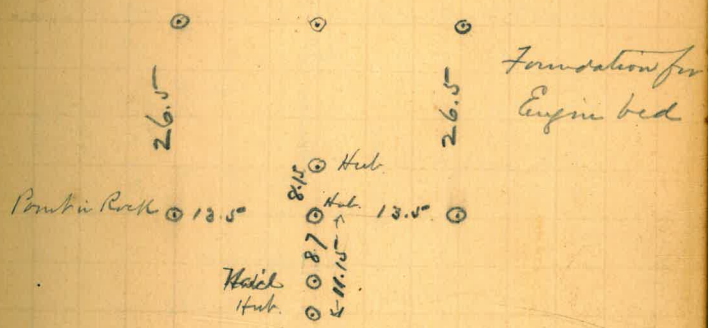 Foundation for
Engine bed
26.5
26.5
Hub
8.15
Point in Rock 13.5
Hub.
13.5
8.7
11.15
Hub.